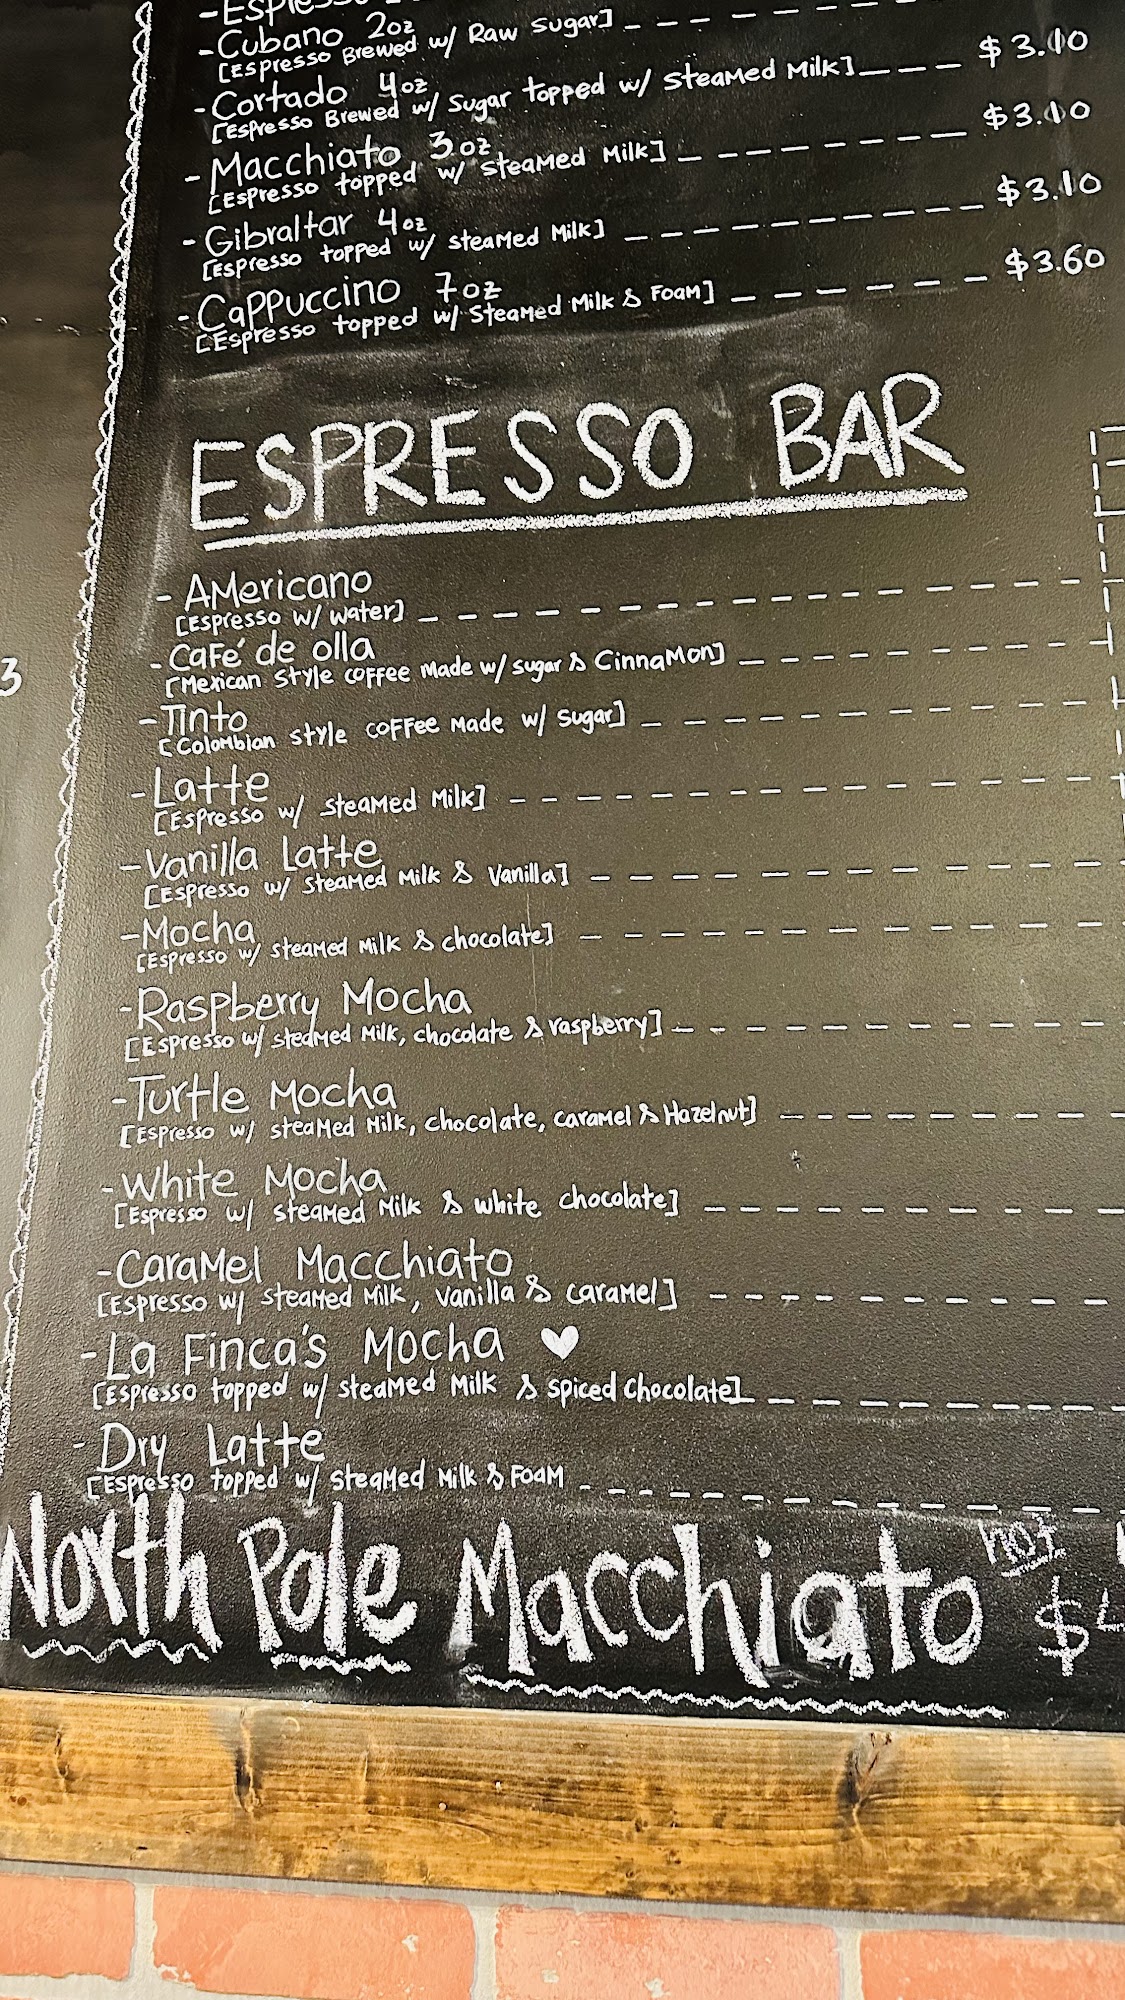 - Cubano 2oz
[Espresso Brewed w/ Raw Sugar]
- Cortado 4oz
[Espresso Brewed w/ Sugar topped w/ Steamed Milk] $3.10
- Macchiato 3oz
[Espresso topped w/ Steamed Milk] $3.10
- Gibraltar 4oz
[Espresso topped w/ Steamed Milk] $3.10
- Cappuccino 7oz
[Espresso topped w/ Steamed Milk & Foam] $3.60
ESPRESSO BAR
- Americano
[Espresso w/ water]
- Café de olla
[Mexican Style coffee Made w/ sugar & Cinnamon]
3
- Tinto
[Colombian style coffee Made w/ Sugar]
- Latte
[Espresso w/ steamed Milk]
- Vanilla Latte
[Espresso w/ steamed Milk & Vanilla]
- Mocha
[Espresso w/ steamed Milk & chocolate]
- Raspberry Mocha
[Espresso w/ steamed Milk, chocolate & raspberry]
- Turtle Mocha
[Espresso w/ steamed Milk, chocolate, caramel & Hazelnut]
- White Mocha
[Espresso w/ steamed Milk & white chocolate]
- Caramel Macchiato
[Espresso w/ steamed Milk, Vanilla & caramel]
- La Finca's Mocha ♥
[Espresso topped w/ steamed Milk & spiced chocolate]
- Dry Latte
[Espresso topped w/ steamed Milk & Foam
North Pole Macchiato hot $4